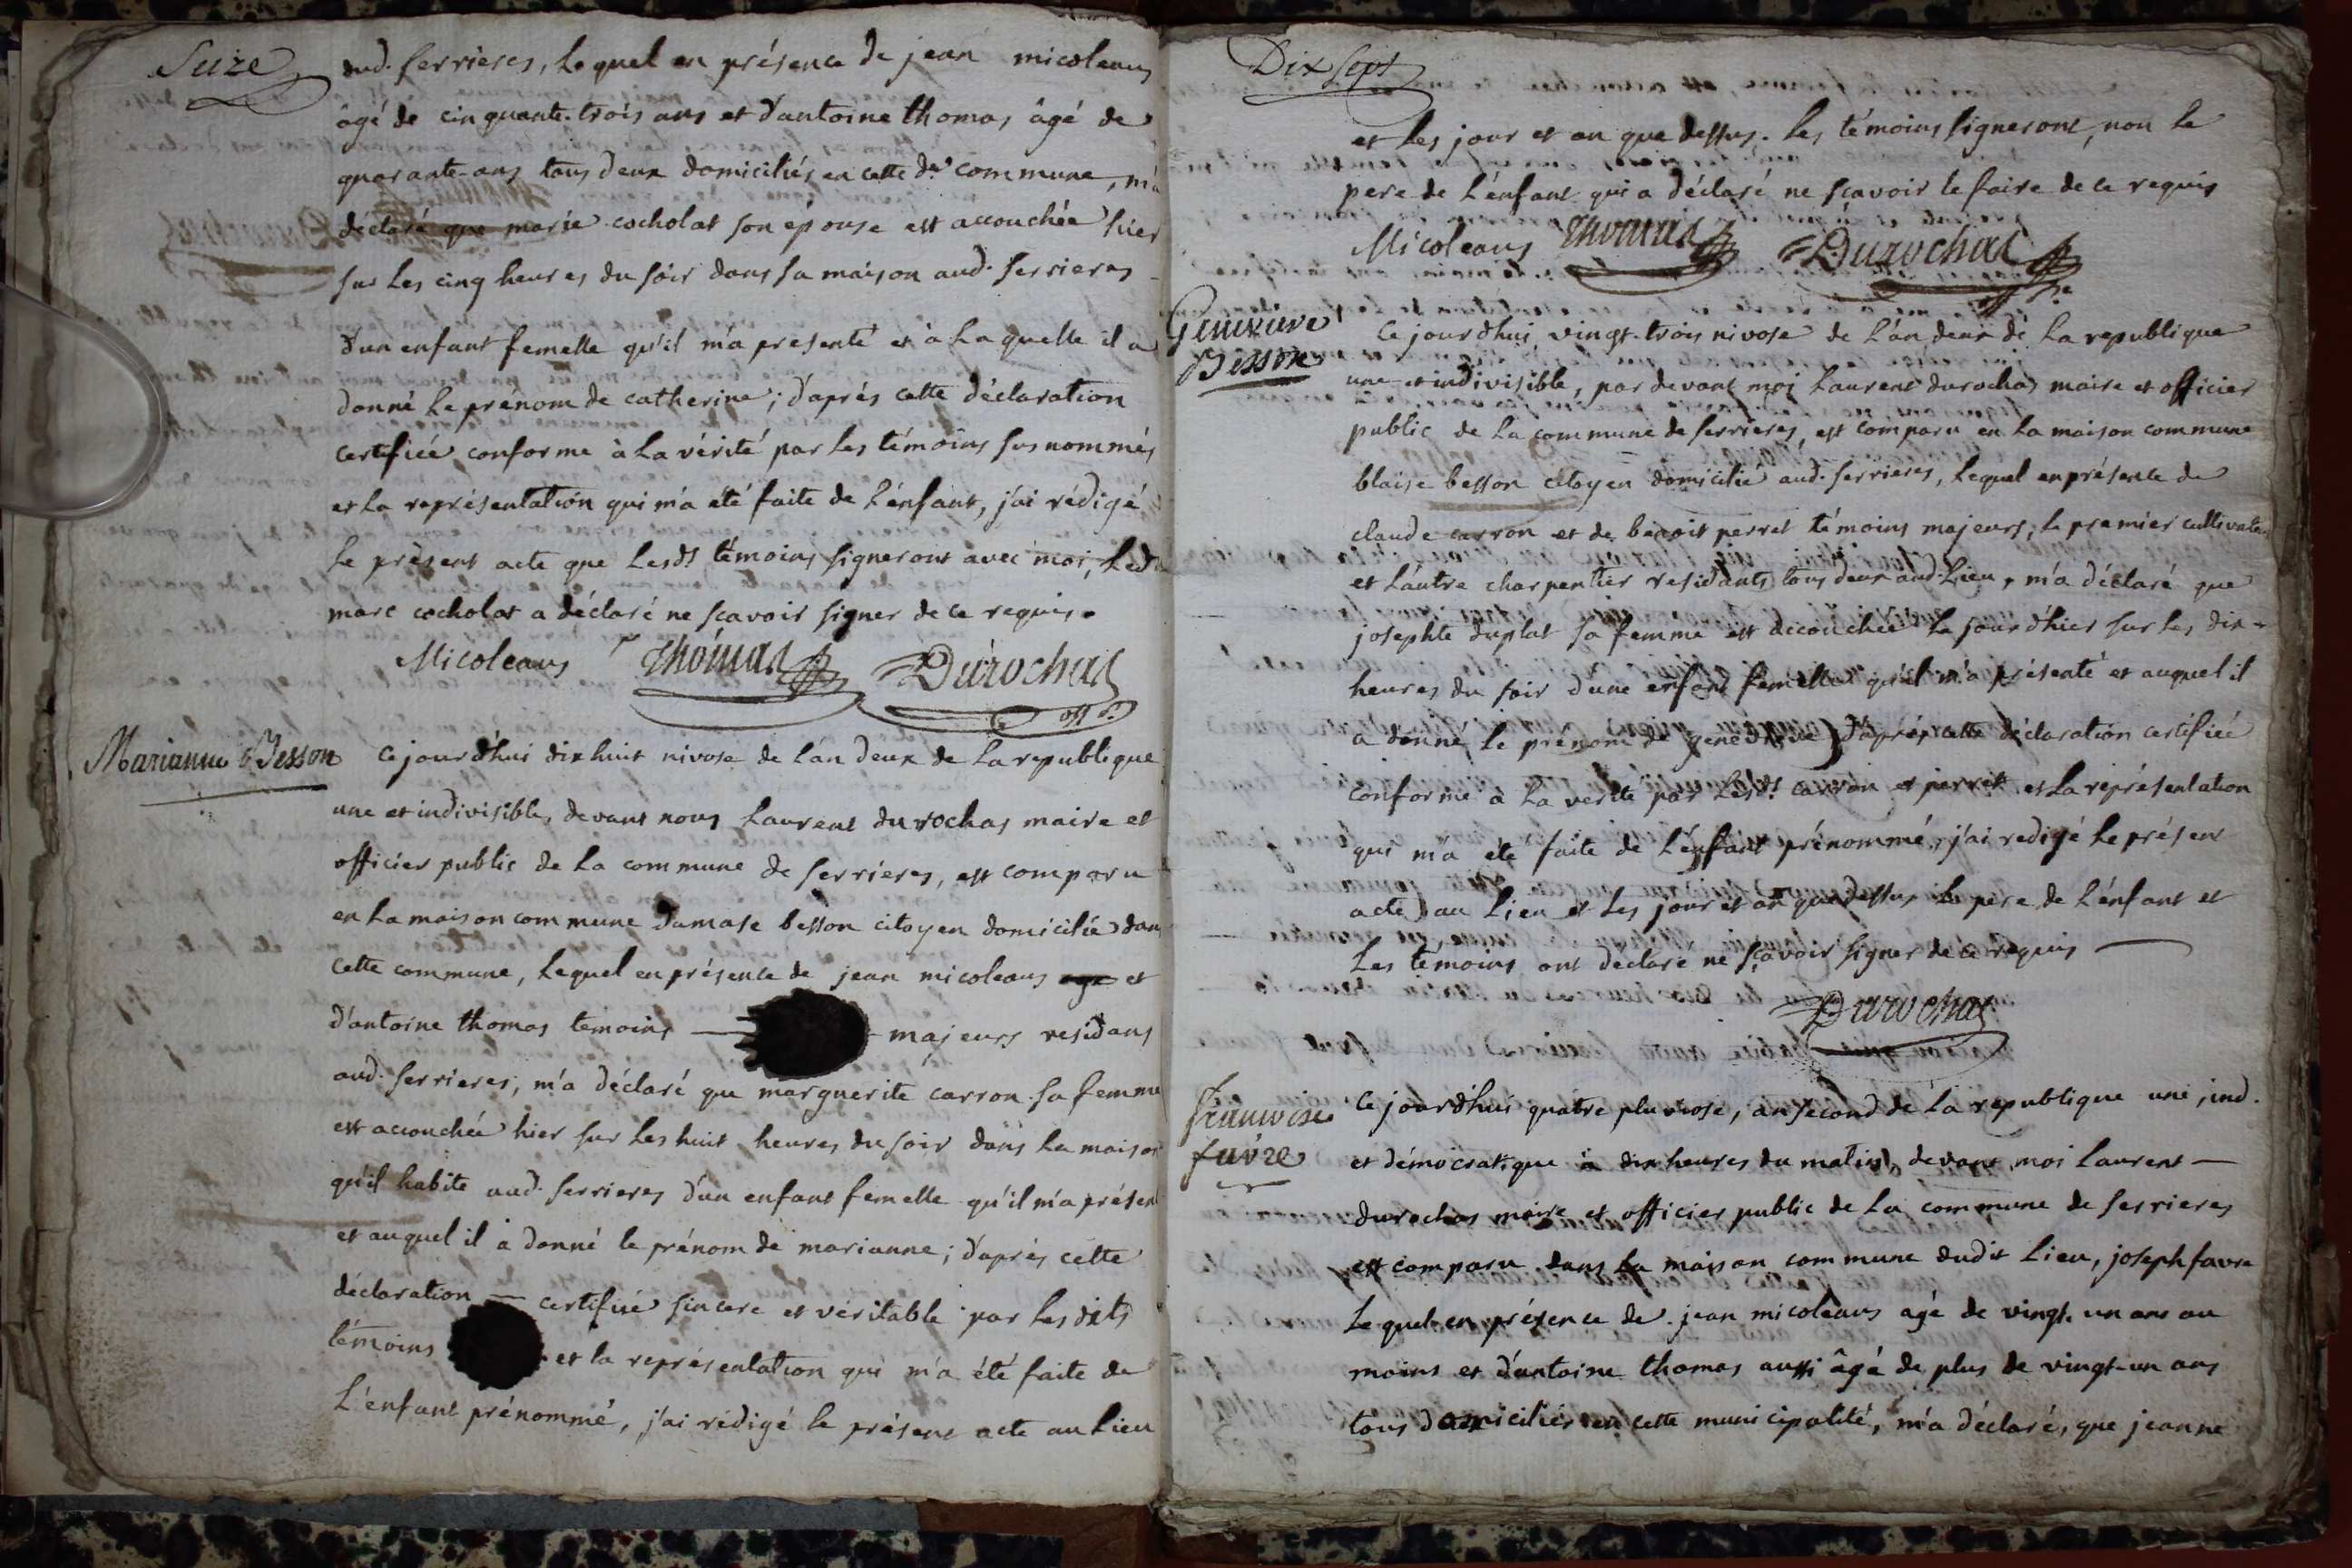 Seize
aud. serrieres, lequel en présence de jean micoleaus
âgé de cinquante-trois ans et d'antoine thomas âgé de
quarante-ans tous deux domiciliés en cette de commune, m'a
déclaré que marie cocholat son épouse est accouchée hier
sur les cinq heures du soir dans sa maison aud. serrieres
d'un enfant femelle qu'il m'a présenté et à laquelle il a
donné le prénom de catherine; d'aprés cette déclaration
certifiée conforme à la vérité par les témoins sus nommés
et la représentation qui m'a été faite de l'énfant, j'ai rédigé
le présent acte que lesdts témoins signeront avec moi, led
marc cocholat a déclaré ne sçavoir signer de ce requis.
Micoleaus Thomas Durochas
off. p.
Marianne Besson
Cejourd'hui dix huit nivose de l'an deux de la republique
une et indivisible, devant nous laurent durochas maire et
officier public de la commune de serrieres, est comparu
en la maison commune damase besson citoyen domicilié dans
cette commune, lequel en présence de jean micoleaus age et
d'antoine thomas temoins majeurs residans
aud. serrieres, m'a déclaré que marguerite carron sa femme
est accouchée hier sur les huit heures du soir dans la maison
qu'il habite aud. serrieres d'un enfant femelle qu'il m'a présen
et auquel il a donné le prénom de marianne; d'aprés cette
déclaration — certifié sincere et véritable par les dits
témoins et la représentation qui m'a été faite de
L'énfant prénommé, j'ai rédigé le présent acte au lieu
Dix Sept
et les jour et an que dessus. les témoins signeront, non le
pere de l'énfant qui a déclaré ne sçavoir le faire de ce requis
Micoleaus Thomas Durochas
Genevieve
Besson
Ce jourd'hui vingt-trois nivose de l'an deux de la republique
une et indivisible, par devant moi laurent durochas maire et officier
public de la commune de serrieres, est comparu en la maison commune
blaise besson citoyen domicilié aud. serrieres, lequel en présence de
claude carron et de benoit perret témoins majeurs, le premier cultivateu
et l'autre charpentier residants tous deux aud. lieu, m'a déclaré que
josephte duplat sa femme est accouchée le jour d'hier sur les dix
heures du soir d'une enfant femelle qu'il m'a présenté et auquel il
a donné le prénom de genevieve d'aprés cette déclaration certifiée
conforme à la verité par lesdt carron et perret et la représentation
qui m'a été faite de l'énfant prénommé, j'ai redigé le présent
acte au lieu et les jour et an que dessus le pere de l'énfant et
les temoins ont déclaré ne sçavoir signer de ce requis —
Durochas
francoise
favre
Ce jourd'hui quatre pluviose, an second de la republique une, ind.
et démocratique à dix heures du matin, devant moi laurent —
durochas maire et officier public de la commune de serrieres
est comparu dans la maison commune dudit lieu, joseph favre
lequel en présence de jean micoleaus agé de vingt-un ans au
moins et d'antoine thomas aussi âgé de plus de vingt-un ans
tous domiciliés en cette municipalité, m'a déclaré, que jeanne